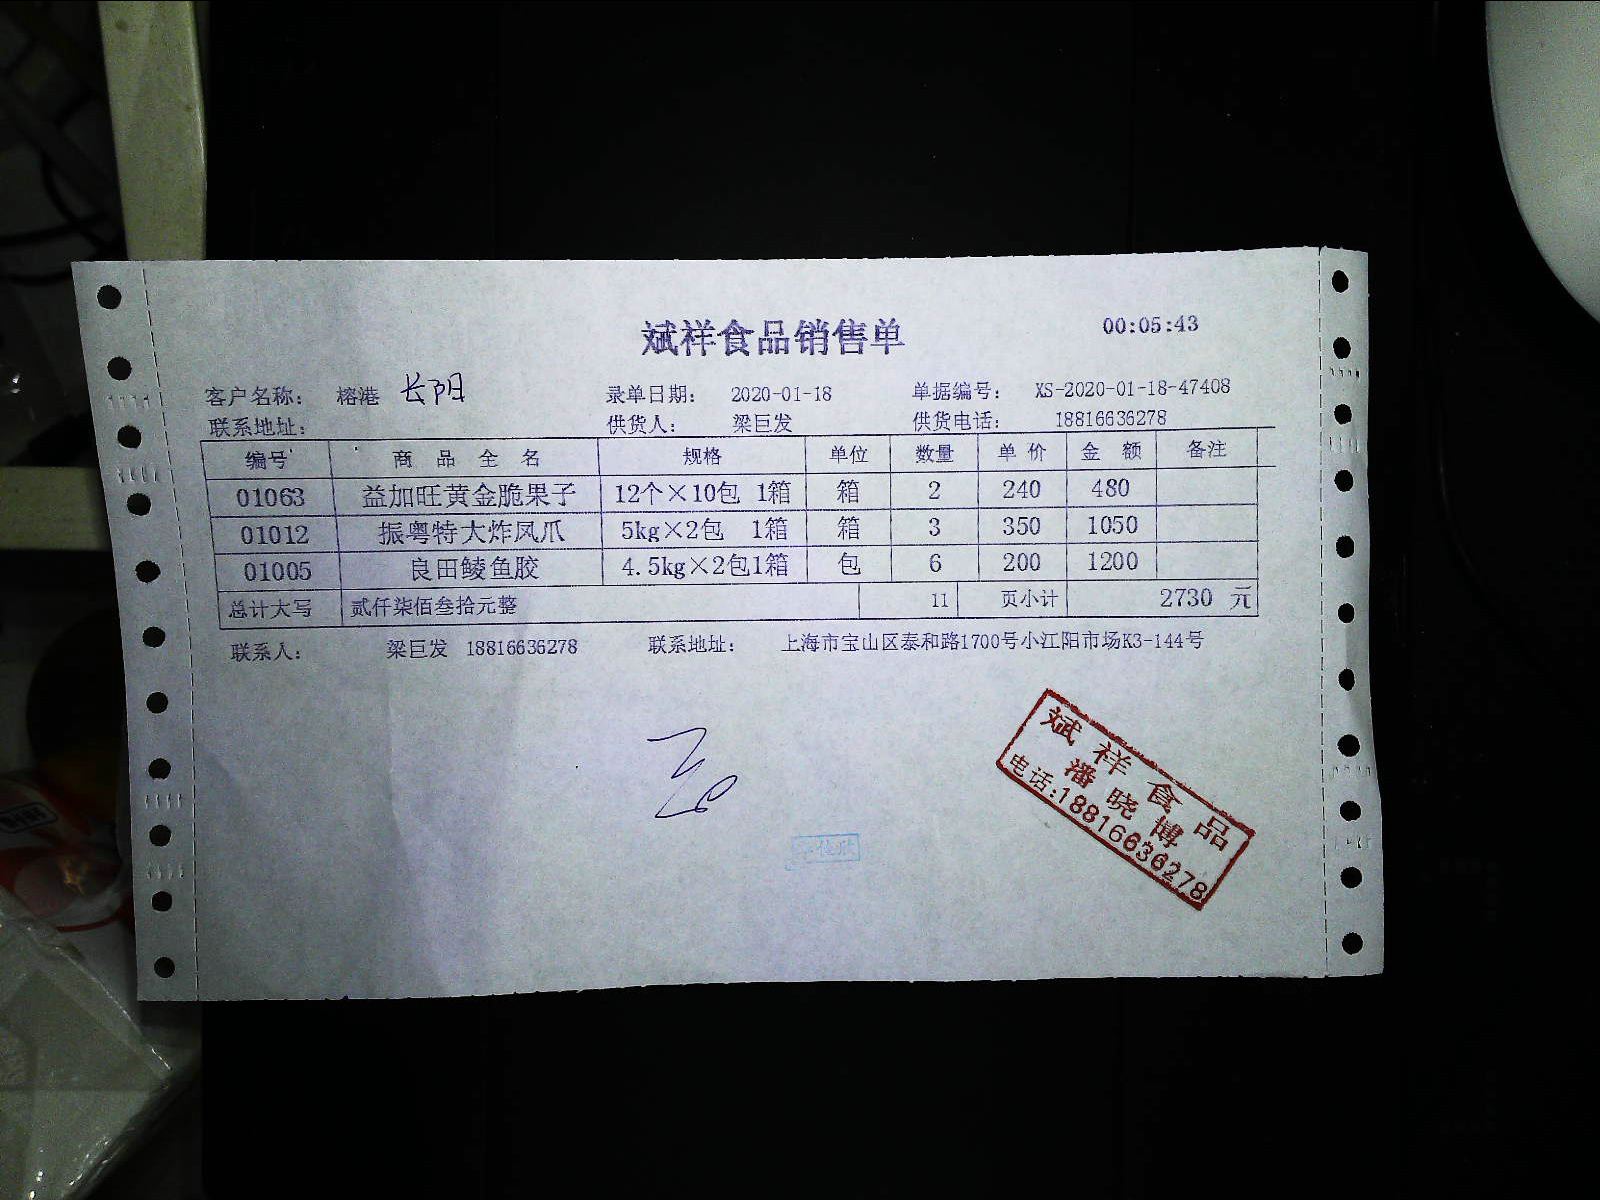 斌祥食品销售单 00:05:43
客户名称： 榕港 长阳 录单日期： 2020-01-18 单据编号： XS-2020-01-18-47408
联系地址： 供货人： 梁巨发 供货电话： 18816636278
编号 商品全名 规格 单位 数量 单价 金额 备注
01063 益加旺黄金脆果子 12个×10包 1箱 箱 2 240 480
01012 振粤特大炸凤爪 5kg×2包 1箱 箱 3 350 1050
01005 良田鲮鱼胶 4.5kg×2包1箱 包 6 200 1200
总计大写 贰仟柒佰叁拾元整 11 页小计 2730 元
联系人： 梁巨发 18816636278 联系地址： 上海市宝山区泰和路1700号小江阳市场K3-144号
斌祥食品
潘晓博
电话:18816636278